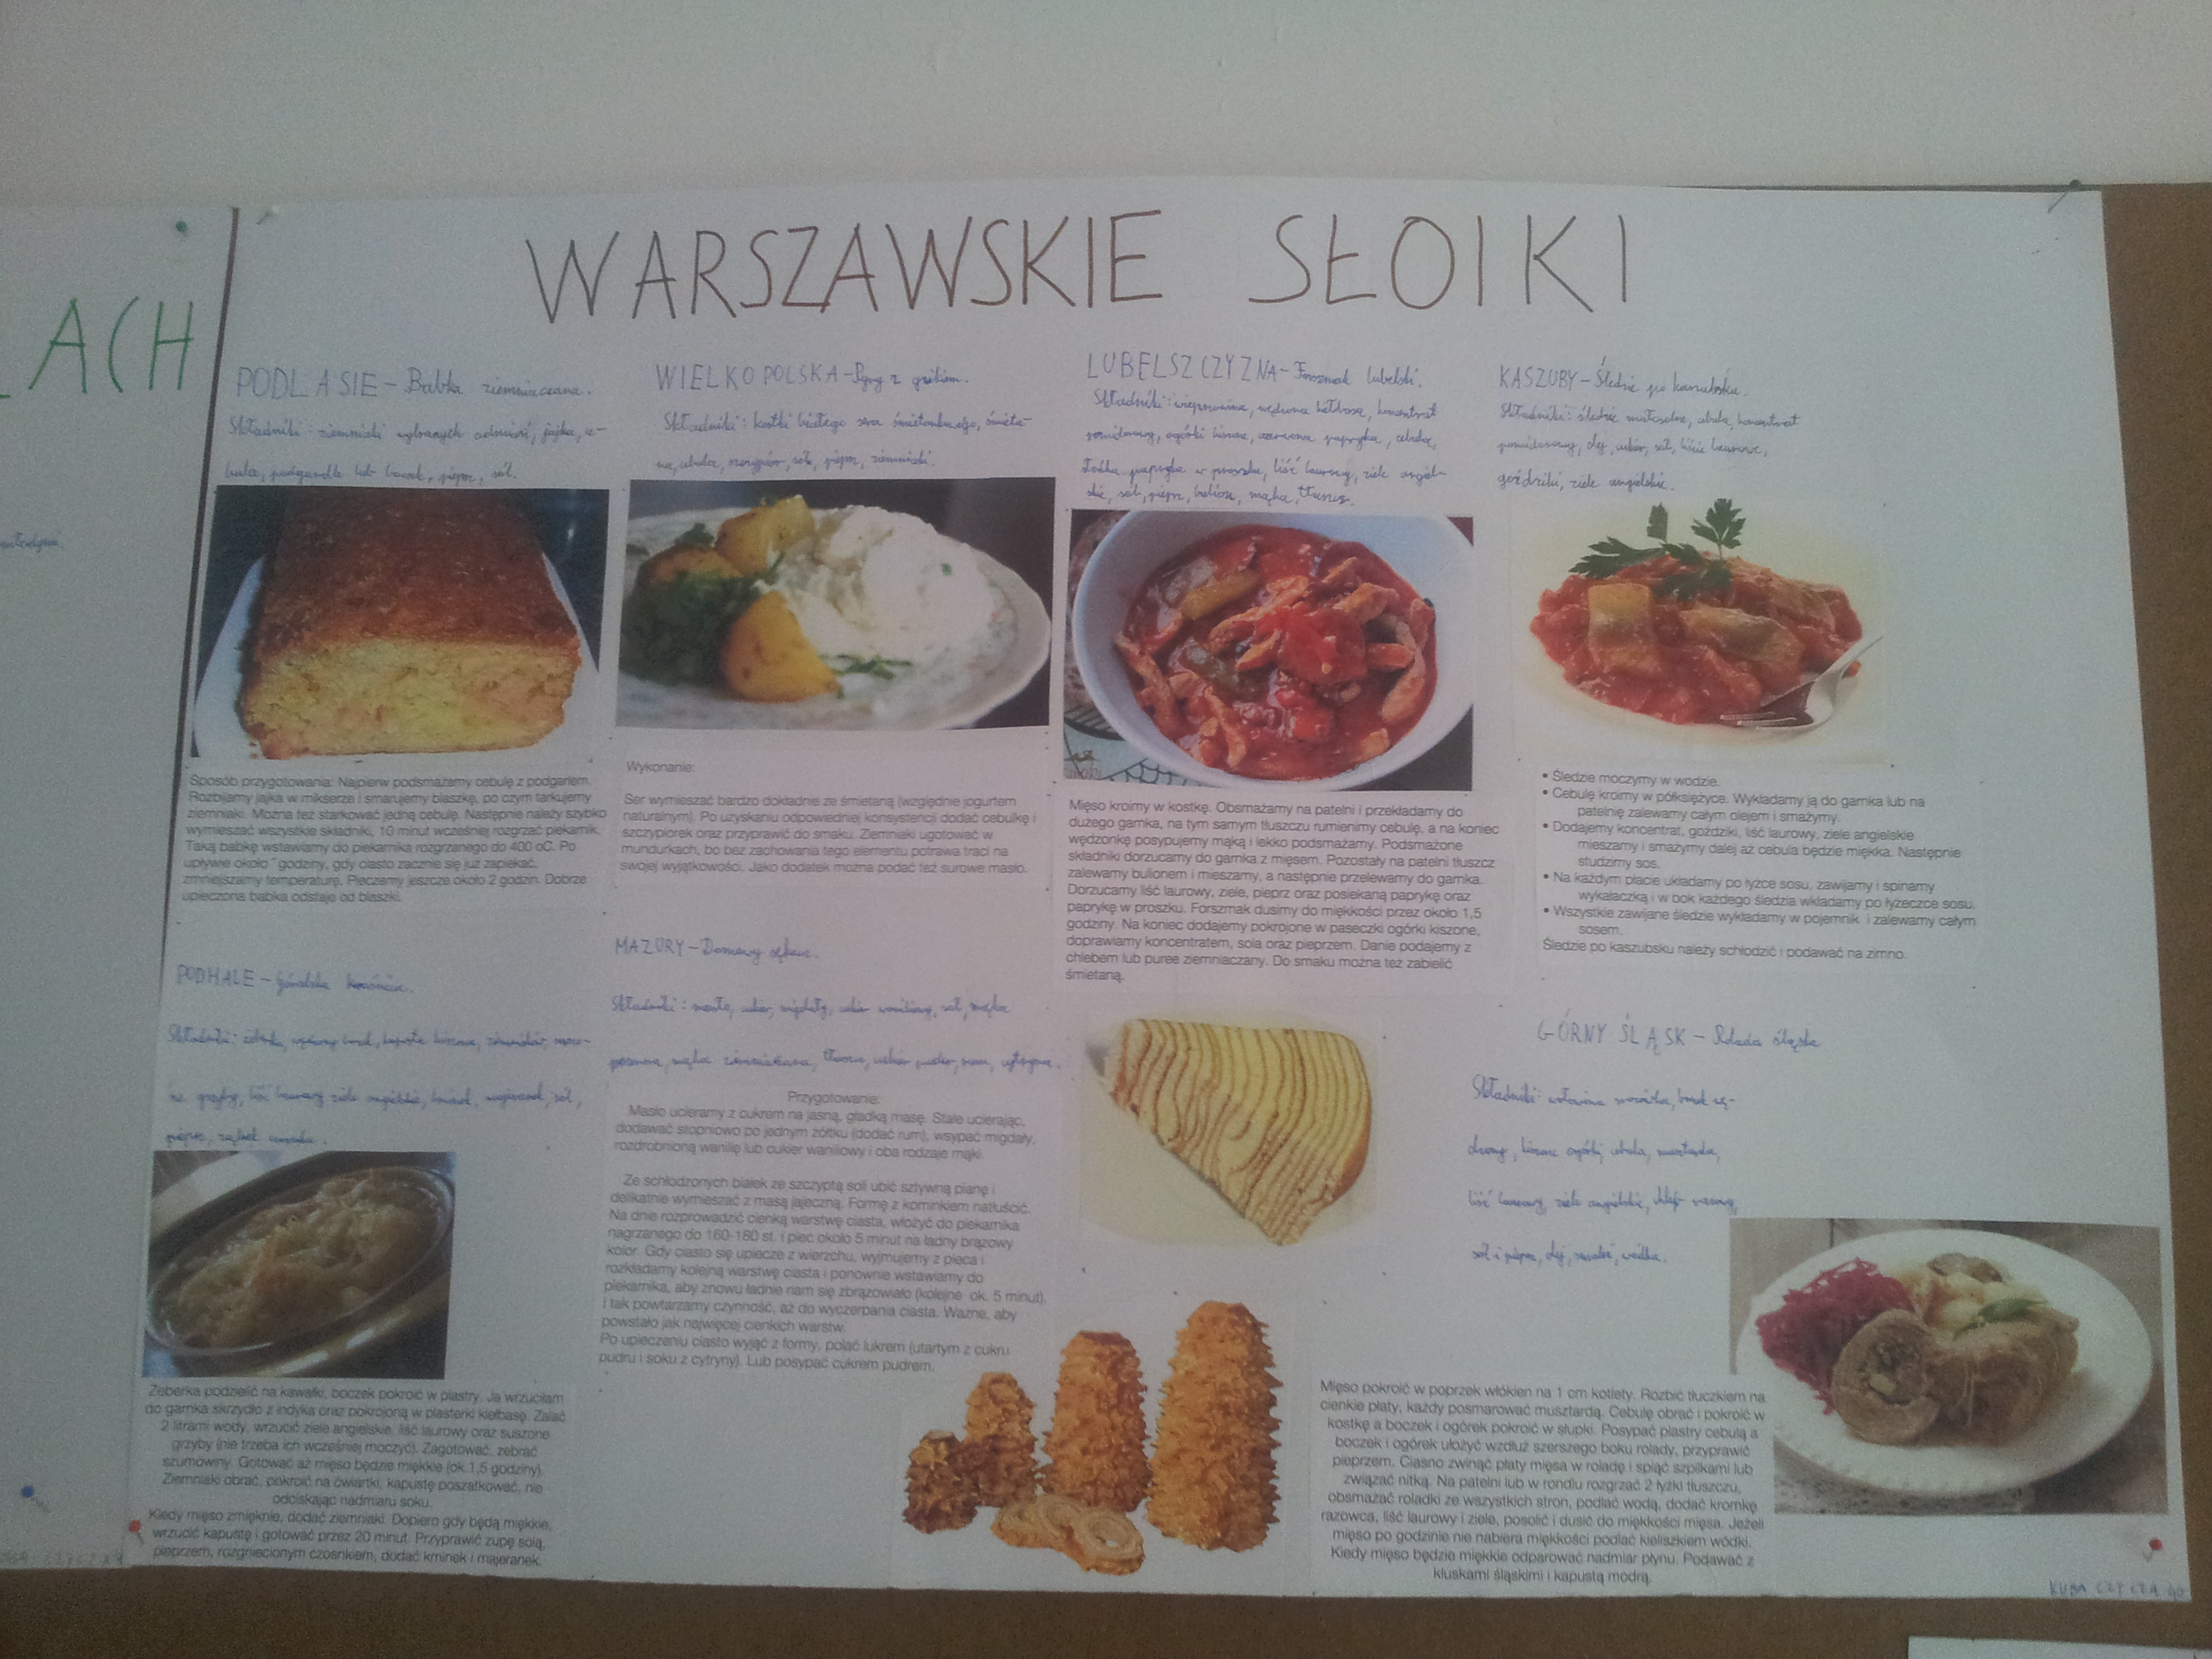 LACH
WARSZAWSKIE SŁOIKI
PODLASIE - Babka ziemniaczana.
Składniki: ziemniaki wybranych odmian, jajka, ce-
bula, podgardle lub boczek, pieprz, sól.
Sposób przygotowania: Najpierw podsmażamy cebulę z podgarlem.
Rozbijamy jajka w mikserze i smarujemy blaszkę, po czym tarkujemy
ziemniaki. Można też starkować jedną cebulę. Następnie należy szybko
wymieszać wszystkie składniki, 10 minut wcześniej rozgrzać piekarnik.
Taką babkę wstawiamy do piekarnika rozgrzanego do 400 oC. Po
upływie około godziny, gdy ciasto zacznie się już zapiekać,
zmniejszamy temperaturę. Pieczemy jeszcze około 2 godzin. Dobrze
upieczona babka odstaje od blaszki.
WIELKOPOLSKA - Pyry z gzikiem.
Składniki: kostki białego sera śmietankowego, śmieta-
na, cebula, szczypior, sól, pieprz, ziemniaki.
Wykonanie:
Ser wymieszać bardzo dokładnie ze śmietaną (względnie jogurtem
naturalnym). Po uzyskaniu odpowiedniej konsystencji dodać cebulkę i
szczypiorek oraz przyprawić do smaku. Ziemniaki ugotować w
mundurkach, bo bez zachowania tego elementu potrawa traci na
swojej wyjątkowości. Jako dodatek można podać też surowe masło.
LUBELSZCZYZNA - Forszmak lubelski.
Składniki: wieprzowina, wędzona kiełbasa, koncentrat
pomidorowy, ogórki kiszone, czerwona papryka, cebula,
słodka papryka w proszku, liść laurowy, ziele angiel-
skie, sól, pieprz, bulion, mąka, tłuszcz.
Mięso kroimy w kostkę. Obsmażamy na patelni i przekładamy do
dużego garnka, na tym samym tłuszczu rumienimy cebulę, a na koniec
wędzonkę posypujemy mąką i lekko podsmażamy. Podsmażone
składniki dorzucamy do garnka z mięsem. Pozostały na patelni tłuszcz
zalewamy bulionem i mieszamy, a następnie przelewamy do garnka.
Dorzucamy liść laurowy, ziele, pieprz oraz posiekaną paprykę oraz
paprykę w proszku. Forszmak dusimy do miękkości przez około 1,5
godziny. Na koniec dodajemy pokrojone w paseczki ogórki kiszone,
doprawiamy koncentratem, sola oraz pieprzem. Danie podajemy z
chlebem lub puree ziemniaczany. Do smaku można też zabielić
śmietaną.
KASZUBY - Śledzie po kaszubsku.
Składniki: śledzie matjasowe, cebula, koncentrat
pomidorowy, olej, cukier, sól, liście laurowe,
goździki, ziele angielskie.
• Śledzie moczymy w wodzie.
• Cebulę kroimy w półksiężyce. Wykładamy ją do garnka lub na
patelnię zalewamy całym olejem i smażymy.
• Dodajemy koncentrat, goździki, liść laurowy, ziele angielskie
mieszamy i smażymy dalej aż cebula będzie miękka. Następnie
studzimy sos.
• Na każdym płacie układamy po łyżce sosu, zawijamy i spinamy
wykałaczką i w bok każdego śledzia wkładamy po łyżeczce sosu.
• Wszystkie zawijane śledzie wykładamy w pojemnik i zalewamy całym
sosem.
Śledzie po kaszubsku należy schłodzić i podawać na zimno.
PODHALE - Góralska kwaśnica.
Składniki: żeberka, wędzony boczek, kapusta kiszona, ziemniaki, suszo-
ne grzyby, liść laurowy, ziele angielskie, kminek, majeranek, sól,
pieprz, ząbek czosnku.
Żeberka podzielić na kawałki, boczek pokroić w plastry. Ja wrzuciłam
do garnka skrzydło z indyka oraz pokrojoną w plasterki kiełbasę. Zalać
2 litrami wody, wrzucić ziele angielskie, liść laurowy oraz suszone
grzyby (nie trzeba ich wcześniej moczyć). Zagotować, zebrać
szumowiny. Gotować aż mięso będzie miękkie (ok.1,5 godziny).
Ziemniaki obrać, pokroić na ćwiartki, kapustę poszatkować, nie
odciskając nadmiaru soku.
Kiedy mięso zmięknie, dodać ziemniaki. Dopiero gdy będą miękkie,
wrzucić kapustę i gotować przez 20 minut. Przyprawić zupę solą,
pieprzem, rozgniecionym czosnkiem, dodać kminek i majeranek.
MAZURY - Domowy sękacz.
Składniki: masło, cukier, migdały, cukier waniliowy, sól, mąka
pszenna, mąka ziemniaczana, tłuszcz, cukier puder, rum, cytryna.
Przygotowanie:
Masło ucieramy z cukrem na jasną, gładką masę. Stale ucierając,
dodawać stopniowo po jednym żółtku (dodać rum), wsypać migdały,
rozdrobnioną wanilię lub cukier waniliowy i oba rodzaje mąki.
Ze schłodzonych białek ze szczyptą soli ubić sztywną pianę i
delikatnie wymieszać z masą jajeczną. Formę z kominkiem natłuścić.
Na dnie rozprowadzić cienką warstwę ciasta, włożyć do piekarnika
nagrzanego do 160-180 st. i piec około 5 minut na ładny brązowy
kolor. Gdy ciasto się upiecze z wierzchu, wyjmujemy z pieca i
rozkładamy kolejną warstwę ciasta i ponownie wstawiamy do
piekarnika, aby znowu ładnie nam się zbrązowiało (kolejne ok. 5 minut).
I tak powtarzamy czynność, aż do wyczerpania ciasta. Ważne, aby
powstało jak najwięcej cienkich warstw.
Po upieczeniu ciasto wyjąć z formy, polać lukrem (utartym z cukru
pudru i soku z cytryny). Lub posypać cukrem pudrem.
GÓRNY ŚLĄSK - Rolada śląska
Składniki: wołowina zrazówka, boczek wę-
dzony, kiszone ogórki, cebula, musztarda,
liść laurowy, ziele angielskie, chleb razowy,
sól i pieprz, olej, smalec, wódka.
Mięso pokroić w poprzek włókien na 1 cm kotlety. Rozbić tłuczkiem na
cienkie płaty, każdy posmarować musztardą. Cebulę obrać i pokroić w
kostkę a boczek i ogórek pokroić w słupki. Posypać plastry cebulą a
boczek i ogórek ułożyć wzdłuż szerszego boku rolady, przyprawić
pieprzem. Ciasno zwinąć płaty mięsa w roladę i spiąć szpilkami lub
związać nitką. Na patelni lub w rondlu rozgrzać 2 łyżki tłuszczu,
obsmażać roladki ze wszystkich stron, podlać wodą, dodać kromkę
razowca, liść laurowy i ziele, posolić i dusić do miękkości mięsa. Jeżeli
mięso po godzinie nie nabiera miękkości podlać kieliszkiem wódki.
Kiedy mięso będzie miękkie odparować nadmiar płynu. Podawać z
kluskami śląskimi i kapustą modrą.
KUBA